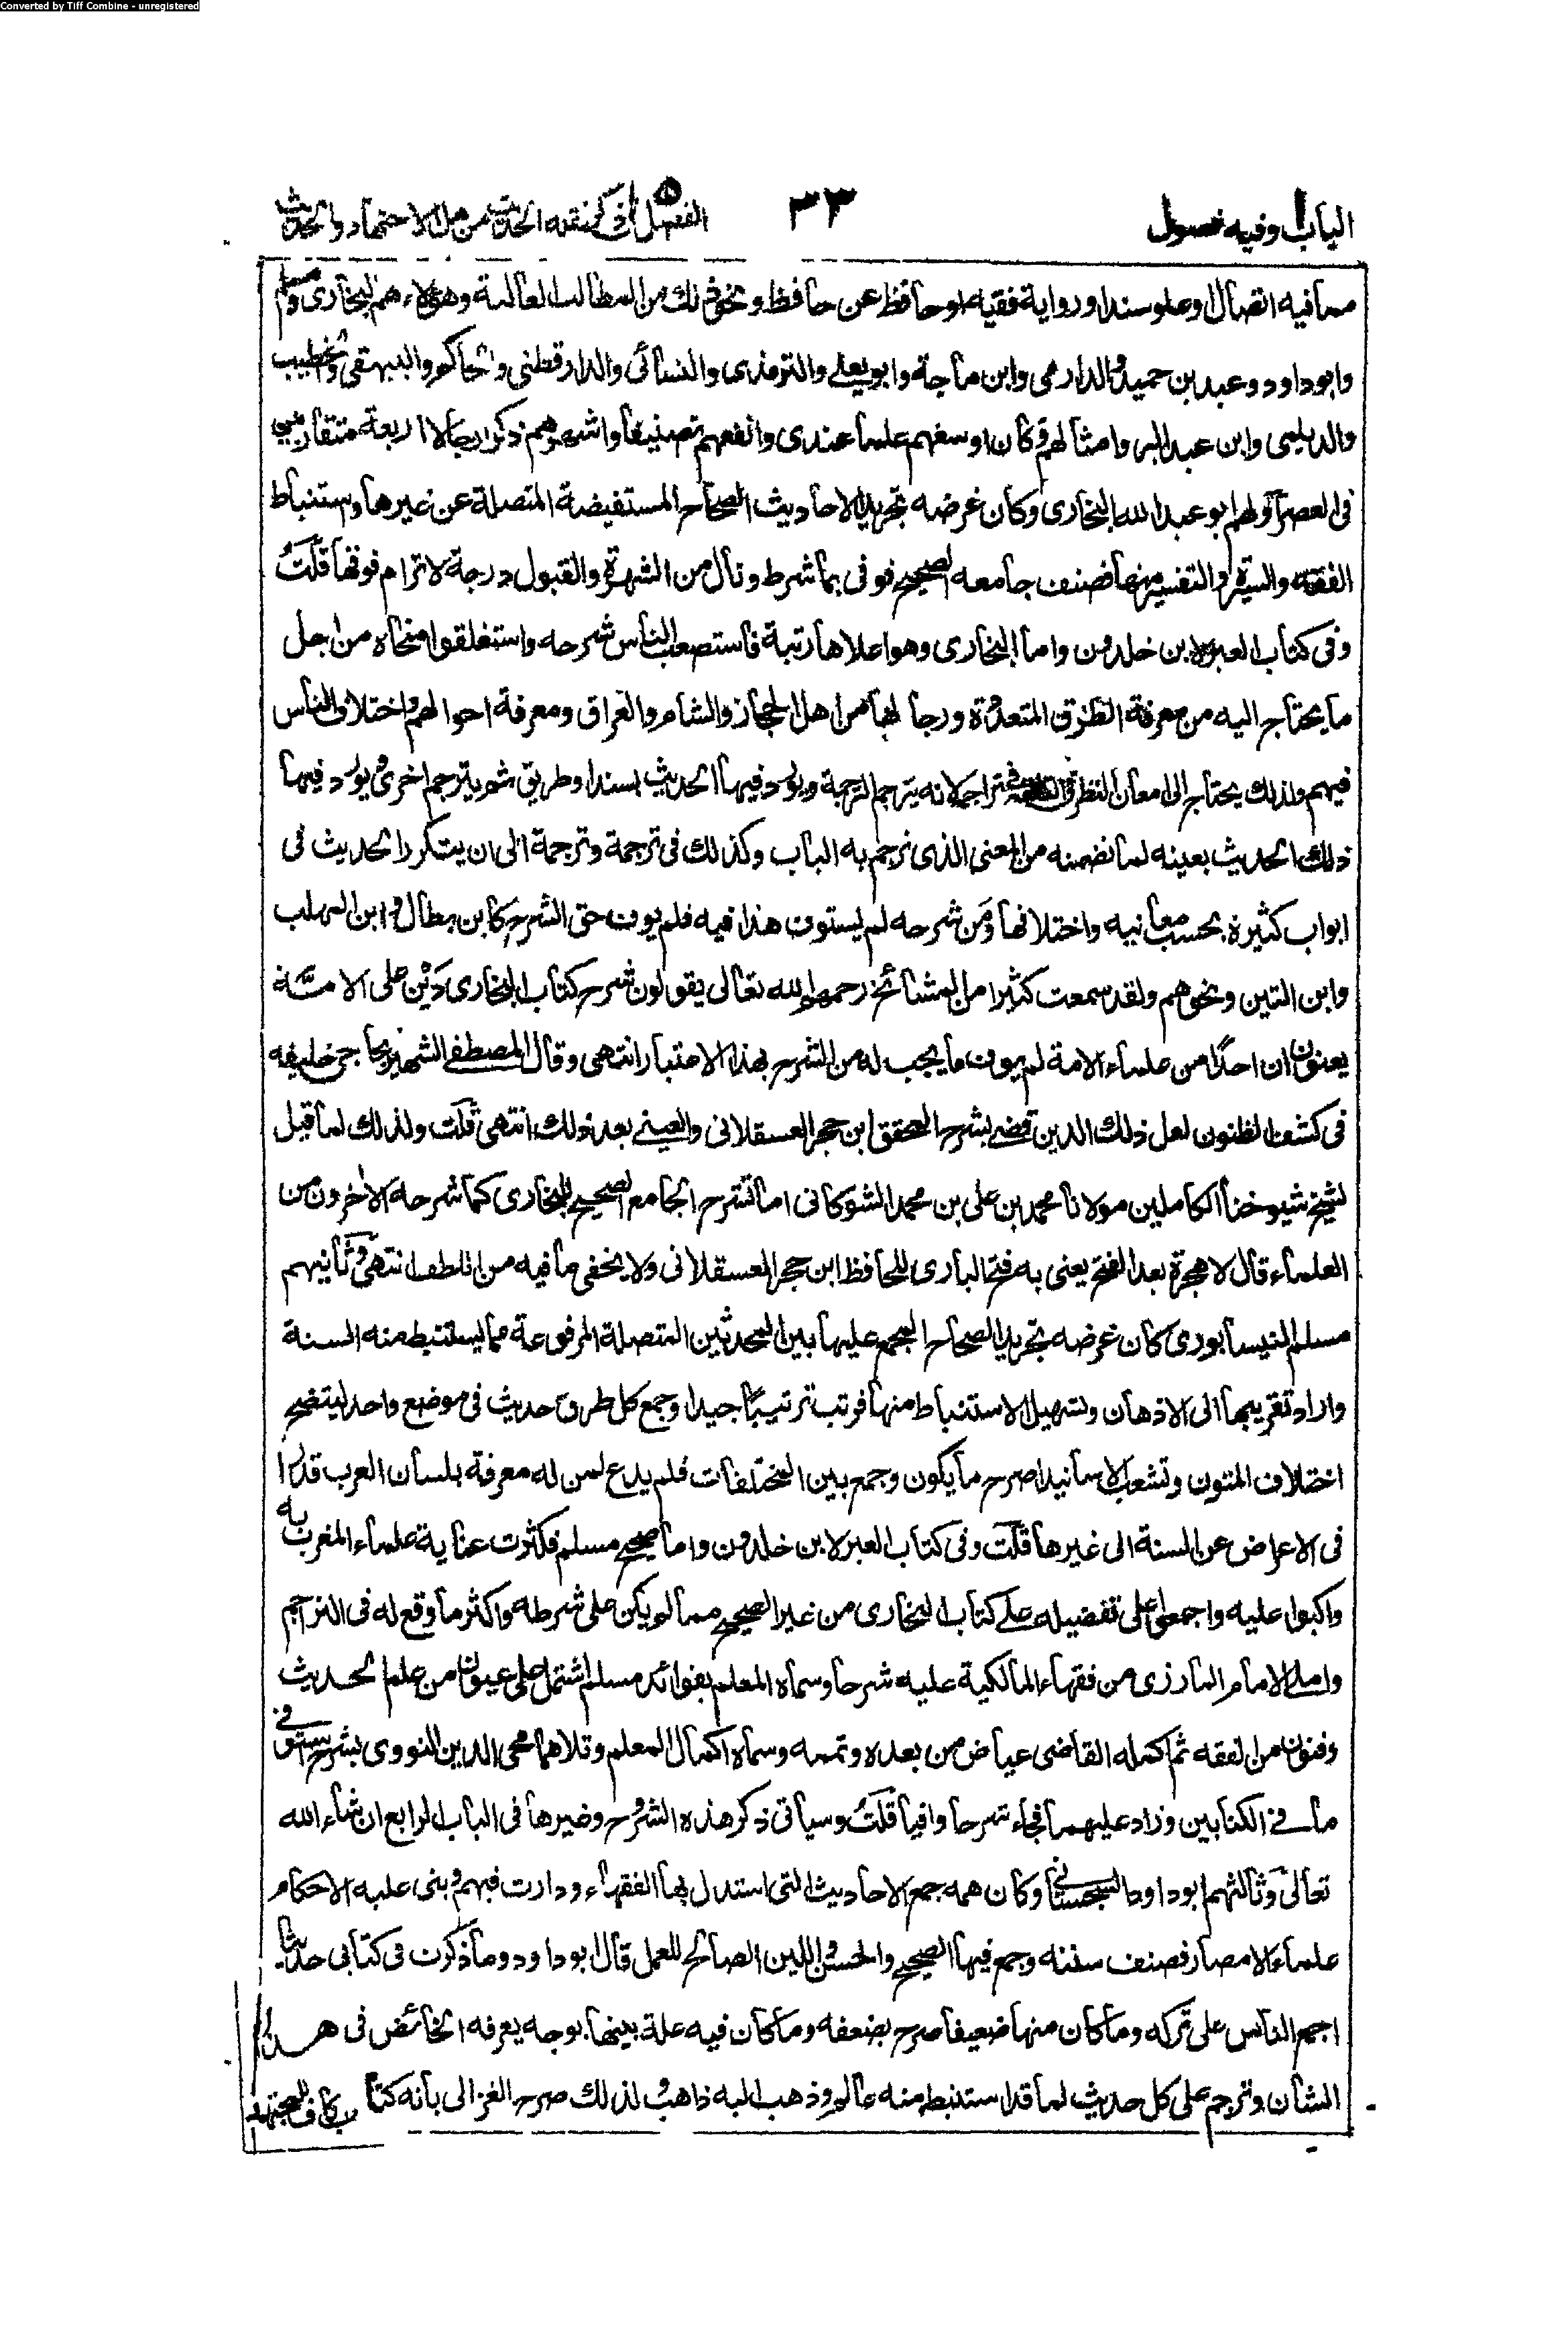 Converted by Tiff Combine - unregistered
الباب ا وفيه فصول
٣٣
الفصل فى ذكر نقلة الحديث من اهل الاجتهاد والحديث
مما فيه اتصال وعلو سند او رواية فقيه او حافظ عن حافظ ونحو ذلك من المطالب العالية وهؤلاء هم البخارى ومسلم
وابو داود وعبد بن حميد والدارمى وابن ماجة وابو يعلى والترمذى والنسائى والدارقطنى والحاكم والبيهقى والخطيب
والديلمى وابن عبد البر وامثالهم وكان اوسعهم علما عندى وانفعهم تصنيفا واشهرهم ذكرا رجالا اربعة متقاربين
فى العصر اولهم ابو عبد الله البخارى وكان غرضه تجريد الاحاديث الصحاح المستفيضة المتصلة عن غيرها واستنباط
الفقه والسيرة والتفسير منها فصنف جامعه الصحيح فوفى بما شرط ونال من الشهرة والقبول درجة لا ترام فوقها قلت
وفى كتاب العبر لابن خلدون واما البخارى وهو اعلاها رتبة فاستصعب الناس شرحه واستغلقوا منحاه من اجل
ما يحتاج اليه من معرفة الطرق المتعددة ورجالها من اهل الحجاز والشام والعراق ومعرفة احوالهم واختلاف الناس
فيهم ولذلك يحتاج الى امعان النظر فى تراجمه لانه يترجم الترجمة ويورد فيها الحديث بسند او طريق ثم يترجم اخرى ويورد فيها
ذلك الحديث بعينه لما تضمنه من المعنى الذى ترجم به الباب وكذلك فى ترجمة وترجمة الى ان يتكرر الحديث فى
ابواب كثيرة بحسب معانيه واختلافها ومن شرحه لم يستوف هذا فيه فلم يوف حق الشرح كابن بطال وابن المهلب
وابن التين ونحوهم ولقد سمعت كثيرا من المشائخ رحمهم الله تعالى يقولون شرح كتاب البخارى دين على الامة
يعنون ان احدا من علماء الامة لم يوف ما يجب له من الشرح بهذا الاعتبار انتهى وقال المصطفى الشهير بحاجى خليفه
فى كشف الظنون لعل ذلك الدين قضى بشرح المحقق ابن حجر العسقلانى والعينى بعد ذلك انتهى قلت ولذلك لما قيل
لشيخ شيوخنا الكاملين مولانا محمد بن على بن محمد الشوكانى اما تشرح الجامع الصحيح للبخارى كما شرحه الآخرون من
العلماء قال لا هجرة بعد الفتح يعنى به فتح البارى للحافظ ابن حجر العسقلانى ولا يخفى ما فيه من اللطف انتهى وثانيهم
مسلم النيسابورى كان غرضه تجريد الصحاح المجمع عليها بين المحدثين المتصلة المرفوعة مما يستنبط منه السنة
واراد تقريبها الى الاذهان وتسهيل الاستنباط منها فرتب ترتيبا جيدا وجمع كل طرق حديث فى موضع واحد ليتضح
اختلاف المتون وتشعب الاسانيد اصرح ما يكون وجمع بين المختلفات فلم يدع لمن له معرفة بلسان العرب قدرا
فى الاعراض عن السنة الى غيرها قلت وفى كتاب العبر لابن خلدون واما صحيح مسلم فكثرت عناية علماء المغرب به
واكبوا عليه واجمعوا على تفضيله على كتاب البخارى من غير الصحيح مما لم يكن على شرطه واكثر ما وقع له فى التراجم
واملى الامام المارزى من فقهاء المالكية عليه شرحا وسماه المعلم بفوائد مسلم اشتمل على عيون من علم الحديث
وفنون من الفقه ثم اكمله القاضى عياض من بعده وتممه وسماه اكمال المعلم وتلاهما محى الدين النووى بشرح استوفى
ما فى الكتابين وزاد عليهما فجاء شرحا وافيا قلت وسيأتى ذكر هذه الشروح وغيرها فى الباب الرابع ان شاء الله
تعالى وثالثهم ابو داود السجستانى وكان همه جمع الاحاديث التى استدل بها الفقهاء ودارت فيهم وبنى عليه الاحكام
علماء الامصار فصنف سننه وجمع فيها الصحيح والحسن واللين الصالح للعمل قال ابو داود وما ذكرت فى كتابى حديثا
اجمع الناس على تركه وما كان منها ضعيفا صرح بضعفه وما كان فيه علة بينها بوجه يعرفه الخائض فى هذا
الشأن وترجم على كل حديث لما قد استنبط منه عالم وذهب اليه ذاهب ولذلك صرح الغزالى بانه كتاب كاف للمجتهد